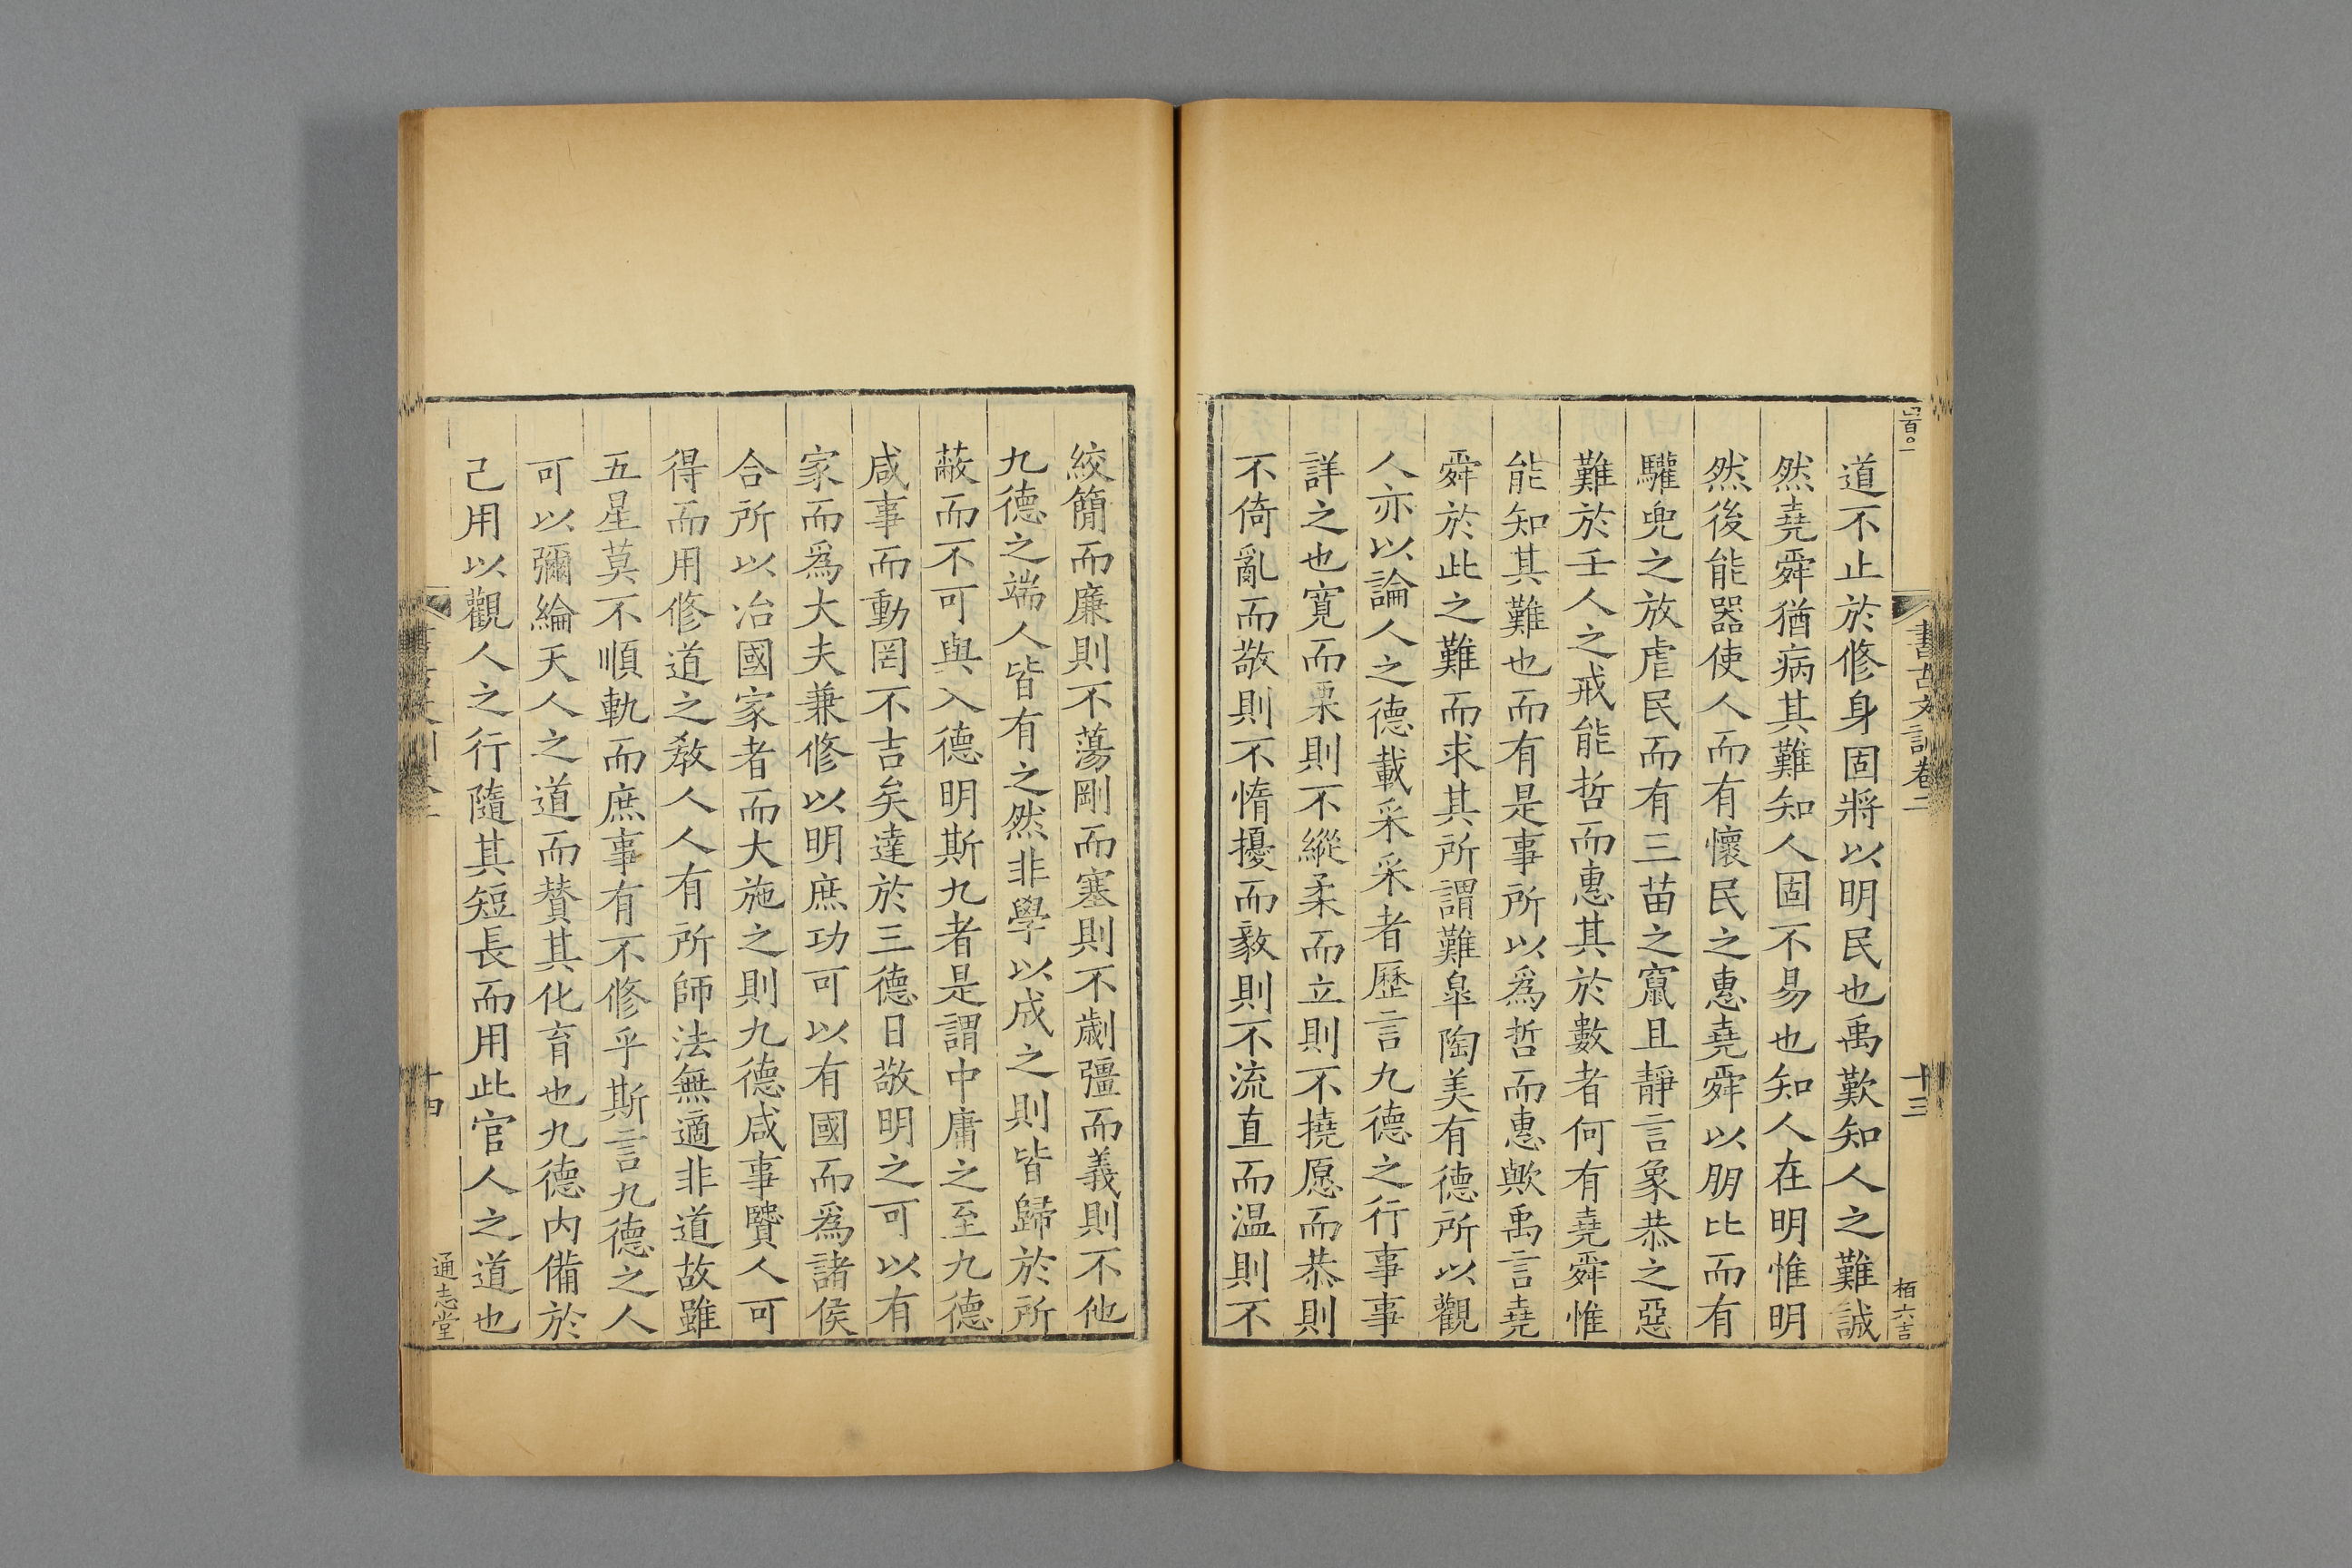 書古文訓卷二
十三
栢六吉
道不止於修身固將以明民也禹歎知人之難誠
然堯舜猶病其難知人固不易也知人在明惟明
然後能器使人而有懷民之惠堯舜以朋比而有
驩兜之放虐民而有三苗之竄且靜言象恭之惡
難於壬人之戒能哲而惠其於數者何有堯舜惟
能知其難也而有是事所以爲哲而惠歟禹言堯
舜於此之難而求其所謂難皐陶美有德所以觀
人亦以論人之德載采采者歷言九德之行事事
詳之也寬而栗則不縱柔而立則不撓愿而恭則
不倚亂而敬則不惰擾而毅則不流直而温則不
絞簡而廉則不蕩剛而塞則不劌彊而義則不他
九德之端人皆有之然非學以成之則皆歸於所
蔽而不可與入德明斯九者是謂中庸之至九德
咸事而動罔不吉矣達於三德日敬明之可以有
家而爲大夫兼修以明庶功可以有國而爲諸侯
合所以冶國家者而大施之則九德咸事賢人可
得而用修道之教人人有所師法無適非道故雖
五星莫不順軌而庶事有不修乎斯言九德之人
可以彌綸天人之道而賛其化育也九德内備於
己用以觀人之行隨其短長而用此官人之道也
十四
通志堂